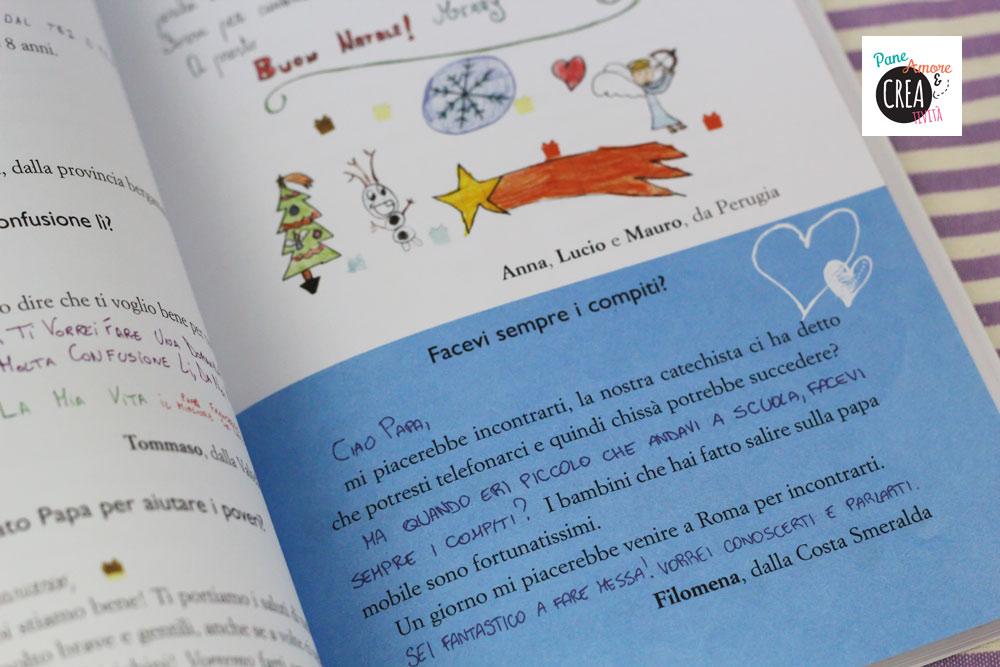 DAL
8 anni.
, dalla provincia
onfusione lì?
o dire che ti voglio bene per
TI VORREI FARE UNA
MOLTA CONFUSIONE LÌ,
LA MIA VITA IL
Tommaso, dalla
ato Papa per aiutare i poveri?
stiamo bene! Ti portiamo i saluti
brave e gentili, anche se a volte
BUON NATALE!
Anna, Lucio e Mauro, da Perugia
Facevi sempre i compiti?
CIAO PAPA,
mi piacerebbe incontrarti, la nostra catechista ci ha detto
che potresti telefonarci e quindi chissà potrebbe succedere?
MA QUANDO ERI PICCOLO CHE ANDAVI A SCUOLA, FACEVI
SEMPRE I COMPITI? I bambini che hai fatto salire sulla papa
mobile sono fortunatissimi.
Un giorno mi piacerebbe venire a Roma per incontrarti.
SEI FANTASTICO A FARE MESSA! VORREI CONOSCERTI E PARLARTI.
Filomena, dalla Costa Smeralda
Pane
Amore
&
CREA
TIVITÀ